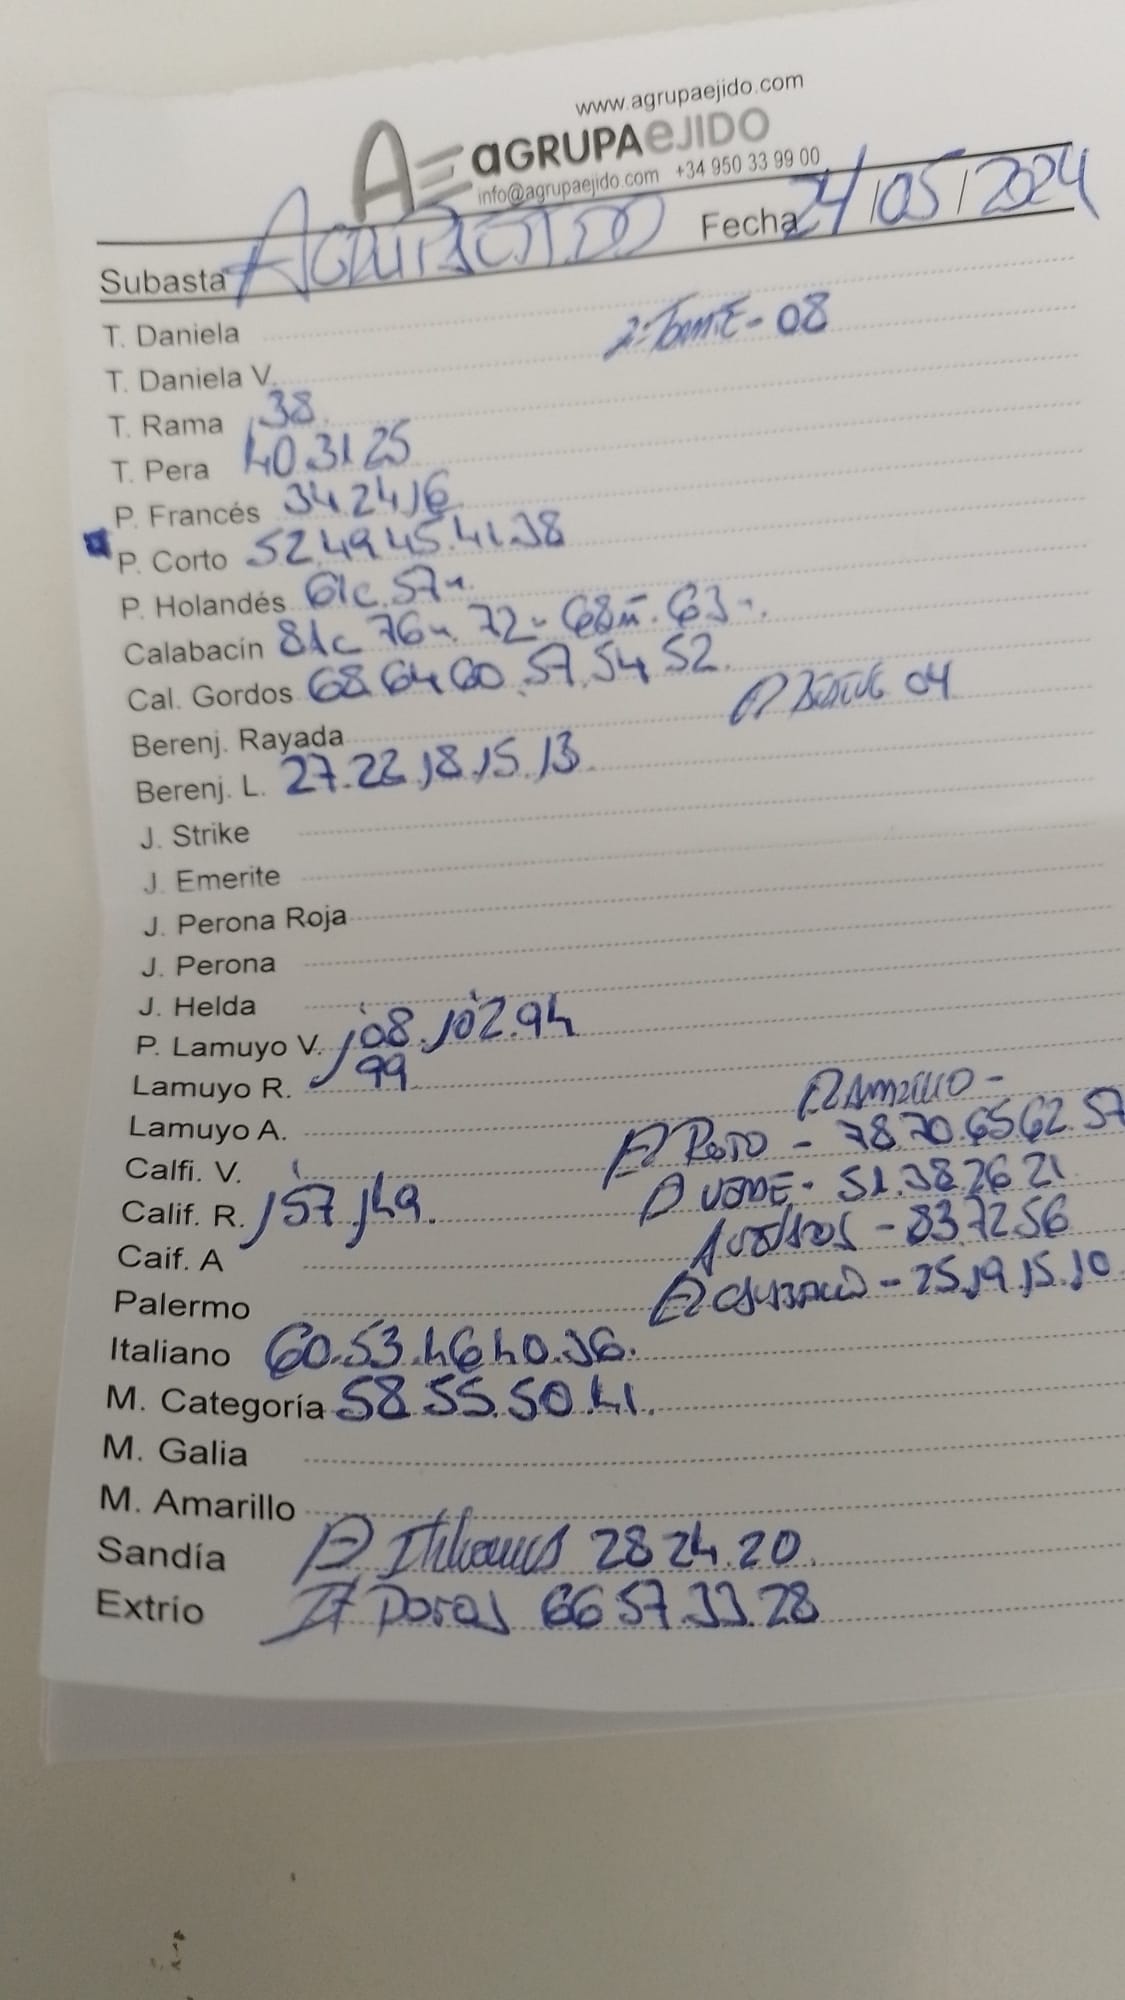 www.agrupaejido.com
AE aGRUPAeJIDO
info@agrupaejido.com +34 950 33 99 00
Subasta AGRUPAEJIDO Fecha 24/05/2024
T. Daniela
2-Tomate - 08
T. Daniela V.
T. Rama 38.
T. Pera 40.31.25
P. Francés 34.24.16
P. Corto 52.49.45.41.38
P. Holandés 61c.57
Calabacín 81c 76 72 68 63
Cal. Gordos 68.64.60.57.54.52.
Berenj. Rayada 04
Berenj. L. 27.22.18.15.13.
J. Strike
J. Emerite
J. Perona Roja
J. Perona
J. Helda
P. Lamuyo V. 1'08.1'02.94
Lamuyo R. 99
Lamuyo A. Amarillo -
Calfi. V. Rojo - 78.70.65.62.57
Calif. R. 1'57.149. Verde - 51.38.26.21
Caif. A - 83.72.56
Palermo - 25.19.15.10
Italiano 60.53.46.40.36.
M. Categoría 58.55.50.41.
M. Galia
M. Amarillo
Sandía Italianos 28.24.20.
Extrío 66.57.33.28